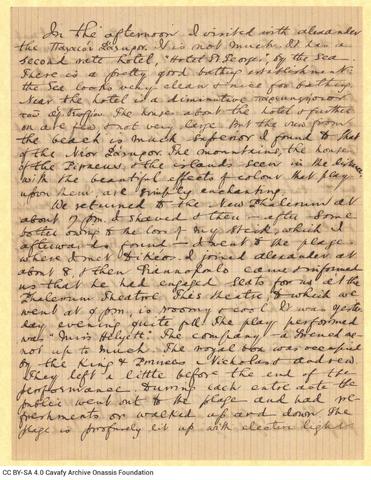 In the afternoon I visited with Alexander
the Παλαιόν Φάληρον. It is not much. It has a
second rate hotel, "Hotel St. George", by the Sea.
There is a pretty good bathing establishment:
the Sea looks very clean & nice for bathing.
Near the hotel is a diminutive
The houses about the hotel & further
on are few & not very large. But the view from
the beach is much superior I found to that
of the Νέον Φάληρον. The mountains, the houses
of the Piraeus & the islands seen in the distance
with the beautiful effects of colour that play
upon them, are simply enchanting.
We returned to the New Phalerum at
about 7 p.m. I shaved & then — after some
bother owing to the loss of my stick, which I
afterwards found — I went to the plage
where I met Dikeos. I joined Alexander at
about 8, & then came & informed
us that he had engaged seats for us at the
Phalerum Theatre. This theatre, to which we
went at 9 p.m., is roomy & cool. It was yester
day evening quite full. The play performed
was "Miss Helyett". The company — a French one —
not up to much. The royal box was occupied
by the King & Princes Nicholas and Andrew.
They left a little before the end of the
performance. During each entre acte the
public went out to the plage and had re-
freshments or walked up and down. The
plage is profusely lit up with electric light
CC BY-SA 4.0 Cavafy Archive Onassis Foundation